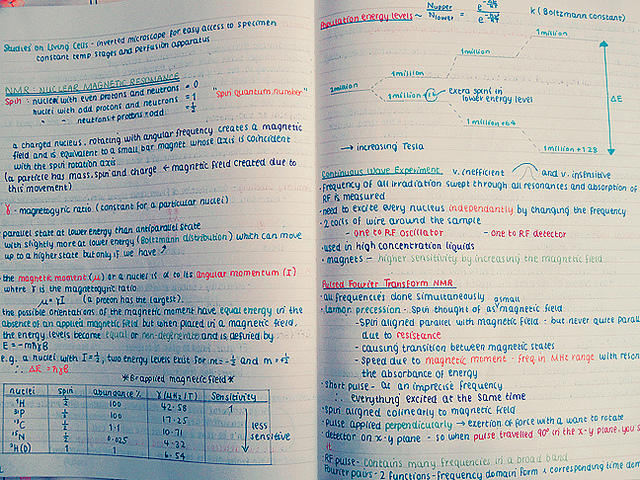 Studies on Living Cells - inverted microscope for easy access to specimen
constant temp stages and perfusion apparatus
NMR: NUCLEAR MAGNETIC RESONANCE
Spin: nuclei with even protons and neutrons = 0
nuclei with odd protons and neutrons = 1
" " neutrons + protons = odd = 1/2
"spin quantum number"
a charged nucleus, rotating with angular frequency creates a magnetic
field and is equivalent to a small bar magnet whose axis is coincident
with the spin rotation axis
(a particle has mass, spin and charge ← magnetic field created due to
this movement)
γ - magnetogyric ratio (constant for a particular nuclei)
parallel state at lower energy than antiparallel state
with slightly more at lower energy (Boltzmann distribution) which can move
up to a higher state but only if we have
the magnetic moment (μ) of a nuclei is α to its angular momentum (I)
where γ is the magnetogyric ratio
μ = γI (a proton has the largest).
the possible orientations of the magnetic moment have equal energy in the
absence of an applied magnetic field but when placed in a magnetic field,
the energy levels become equal or non-degenerate and is defined by
E = -mħγB
e.g. a nuclei with I = 1/2, two energy levels exist for m = -1/2 and m = +1/2
∴ ΔE = ħγB
*B = applied magnetic field*
nuclei spin abundance % γ (MHz/T) Sensitivity
¹H 1/2 100 42.58 1
³¹P 1/2 100 17.25
¹³C 1/2 1.1 10.71
¹⁵N 1/2 0.025 4.32
²H(D) 1 1 6.54
less
sensitive
Population energy levels ~ Nupper / Nlower =
k (Boltzmann constant)
1 million
1 million
2 million
1 million
extra spins in
lower energy level
ΔE
1 million + 64
1 million + 128
→ increasing Tesla
Continuous Wave Experiment v. inefficient and v. insensitive
• frequency of all irradiation swept through all resonances and absorption of
RF is measured
• need to excite every nucleus independently by changing the frequency
• 2 coils of wire around the sample
- one to RF oscillator - one to RF detector
• used in high concentration liquids
• magnets - higher sensitivity by increasing the magnetic field
Pulsed Fourier Transform NMR
• all frequencies done simultaneously
• Larmor precession - spin thought of as a small magnetic field
- Spin aligned parallel with magnetic field - but never quite parallel
due to resistance
- causing transition between magnetic states
- Speed due to magnetic moment - freq in MHz range with
the absorbance of energy
• Short pulse - at an imprecise frequency
∴ everything excited at the same time
• spin aligned colinearly to magnetic field
• pulse applied perpendicularly → exertion of force with a want to rotate
• detector on x-y plane - so when pulse travelled 90° in the x-y plane, you
it
• RF pulse - contains many frequencies in a broad band
• Fourier pairs - 2 functions - frequency domain form & corresponding time